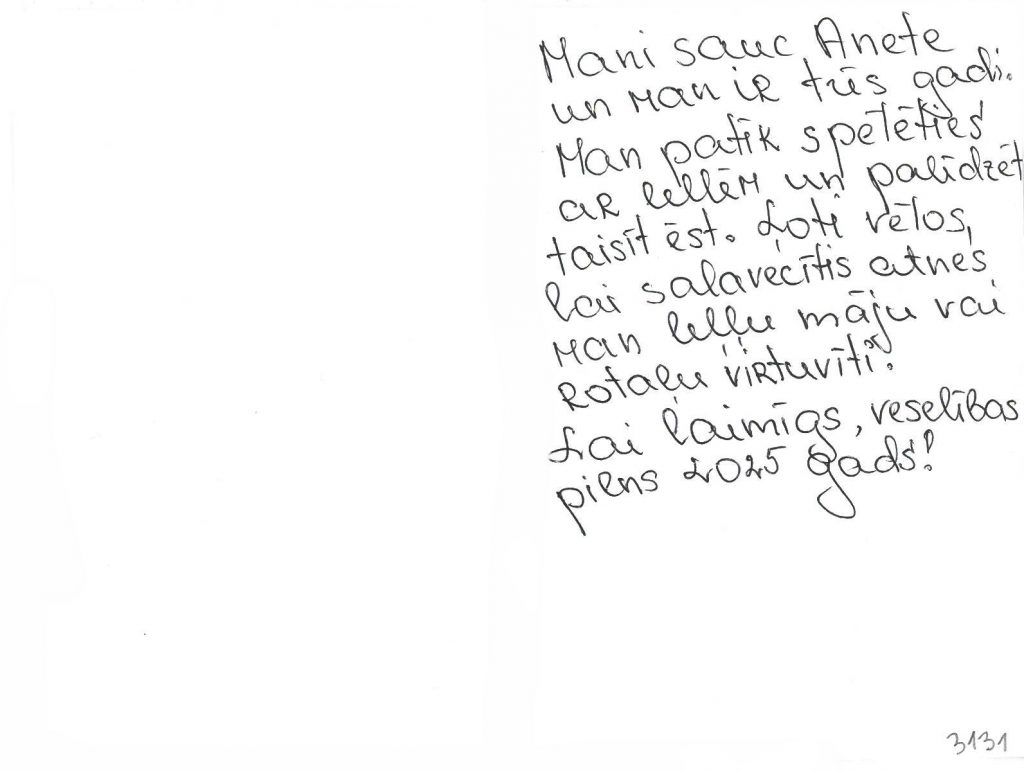 Mani sauc Anete
un man ir trīs gadi.
Man patīk spēlēties
ar lellēm un palīdzēt
taisīt ēst. Ļoti vēlos,
lai salavecītis atnes
man leļļu māju vai
rotaļu virtuvīti.
Lai laimīgs, veselības
pilns 2025 gads!
3131